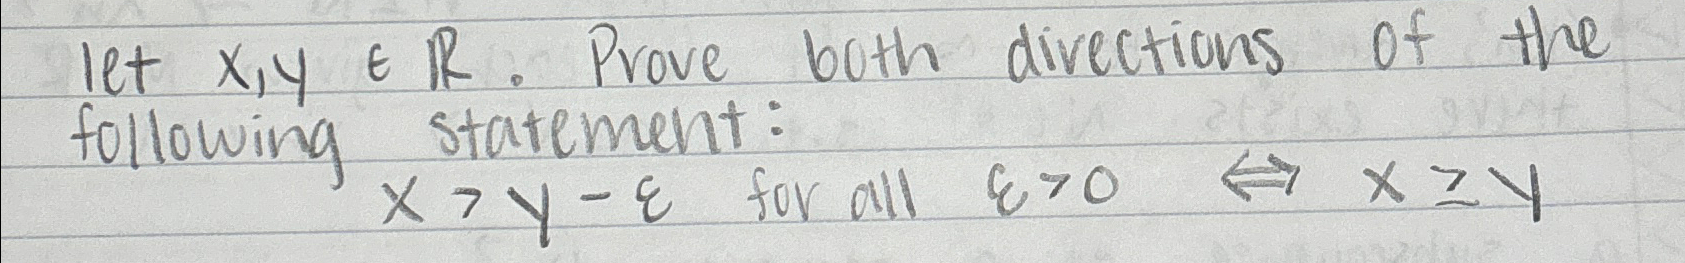 let x,y ∈ ℝ. Prove both directions of the
following statement:
x > y - ε for all ε > 0 ⟺ x ≥ y